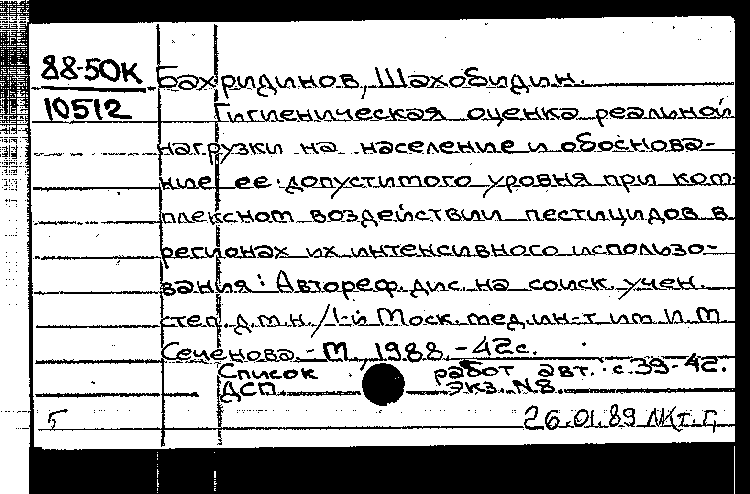 88-50К Бахридинов, Шахобидин.
10512 Гигиеническая оценка реальной
нагрузки на население и обоснова-
ние ее допустимого уровня при ком-
плексном воздействии пестицидов в
регионах их интенсивного использо-
вания: Автореф. дис. на соиск. учен.
степ. д.м.н. / 1-й Моск. мед. ин-т им И.М
Сеченова. - М., 1988. - 42 с.
Список работ авт.: с. 39-42.
ДСП. Экз. N8.
5 26.01.89